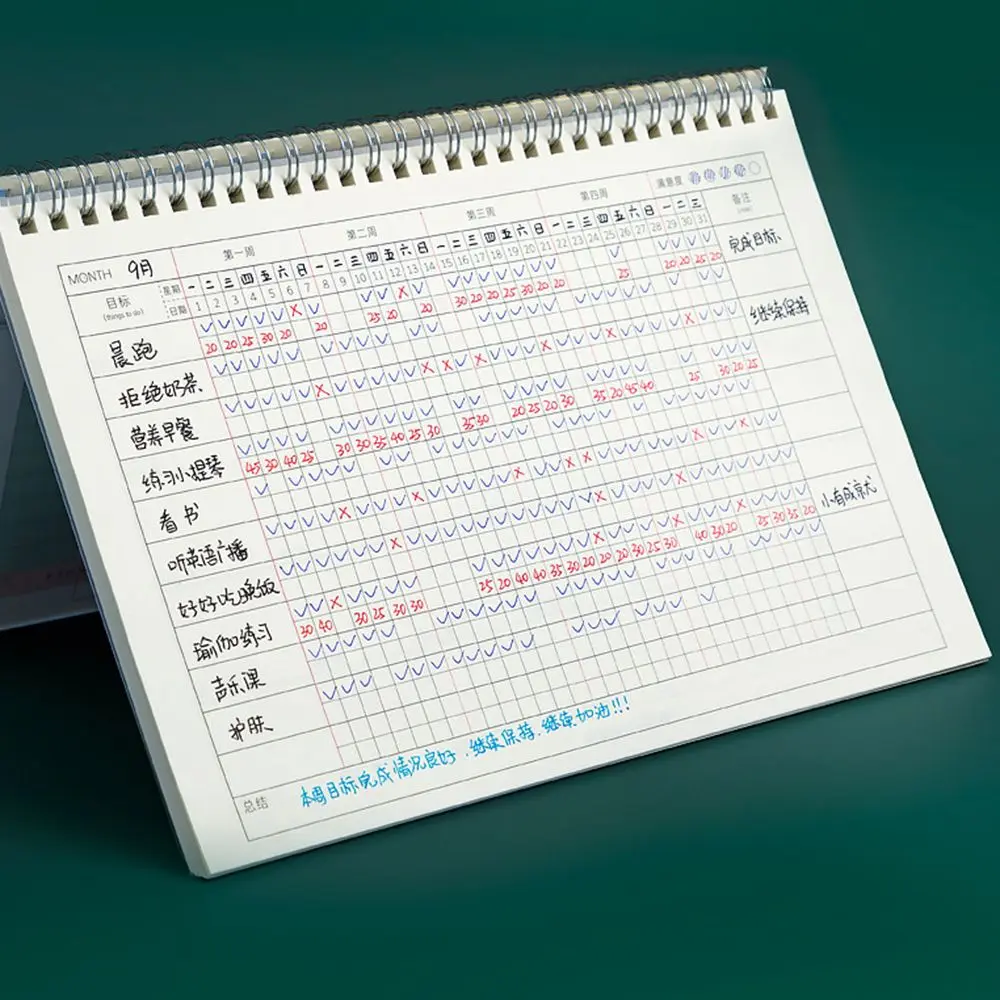 第一周 第二周 第三周 第四周 满意度 备注
MONTH 9月
星期 一 二 三 四 五 六 日 一 二 三 四 五 六 日 一 二 三 四 五 六 日 一 二 三 四 五 六 日 一 二 三
目标 日期 1 2 3 4 5 6 7 8 9 10 11 12 13 14 15 16 17 18 19 20 21 22 23 24 25 26 27 28 29 30 31
(things to do)
晨跑 20 20 25 30 20 20 25 20 20 30 20 20 25 30 20 20 25 20 20 25 20 完成目标
拒绝奶茶 继续保持
营养早餐
练习小提琴 45 30 40 25 30 30 35 40 25 30 35 30 20 25 20 30 35 20 45 40 25 30 20 25
看书
听英语广播 小有成就
好好吃晚饭
瑜伽练习 30 40 30 25 30 30 25 20 40 40 35 30 20 20 20 30 25 30 40 30 20 25 30 35 20
声乐课
护肤
总结 本周目标完成情况良好,继续保持,继续加油!!!